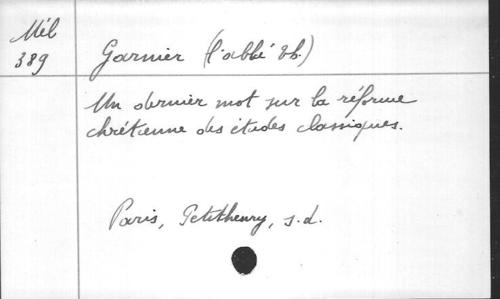 Mél
389
Garnier (l'abbé Th.)
Un dernier mot sur la réforme
chrétienne des études classiques.
Paris, Petithenry, s.d.